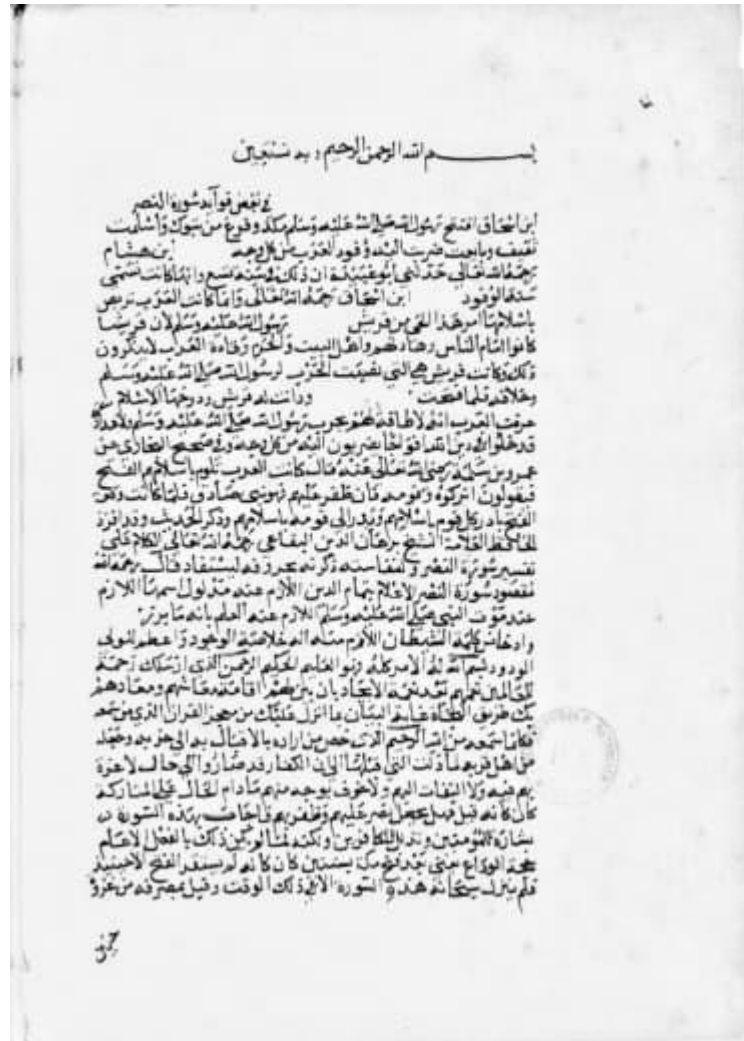 بسم الله الرحمن الرحيم وبه نستعين
في بعض فوائد سورة النصر
ابن اسحاق افتتح رسول الله صلى الله عليه وسلم مكة وفرغ من تبوك واسلمت
ثقيف وبايعت ضربت اليه وفود العرب من كل وجه ابن هشام
رحمه الله تعالى حدثني ابو عبيدة ان ذلك في سنة تسع وانها كانت تسمى
سنة الوفود ابن اسحاق رحمه الله تعالى وانما كانت العرب تربص
باسلامها امر هذا الحي من قريش رسول الله صلى الله عليه وسلم لان قريشا
كانوا امام الناس وهاديهم واهل البيت والحرم وقادة العرب لا ينكرون
ذلك وكانت قريش هي التي نصبت الحرب لرسول الله صلى الله عليه وسلم
وخلافه فلما افتتحت ودانت له قريش ودوخها الاسلام
عرفت العرب انهم لا طاقة لهم بحرب رسول الله صلى الله عليه وسلم ولا عداوته
فدخلوا في دين الله افواجا يضربون اليه من كل وجه وفي صحيح البخاري عن
عمرو بن سلمة رضي الله تعالى عنه قال كانت العرب تلوم باسلامهم الفتح
فيقولون اتركوه وقومه فان ظهر عليهم فهو نبي صادق فلما كانت وقعة
الفتح بادر كل قوم باسلامهم وبدر ابي قومه باسلامهم وذكر الحديث وقد افرد
الحافظ العلامة الشيخ برهان الدين البقاعي رحمه الله تعالى الكلام على
تفسير سورة النصر ولنفاسته ذكرته بحروفه ليستفاد قال رحمه الله
مقصود سورة النصر الاعلام بتمام الدين اللازم عنه مدلول اسمها اللازم
عنه موت النبي صلى الله عليه وسلم اللازم عنه العلم بانه ما برز
الشيطان اللازم منه انه خلاصة الوجود واعظم
الودود بسم الله له الامر كله وهو العليم الحكيم الرحمن الذي ارسلك رحمة
للعالمين بان بين لهم اقامة معاشهم ومعادهم
بك طريق النجاة غاية البيان بما انزل عليك من معجز القران الذي من سمعه
فكانما سمعه من الله الرحيم الذي خص من اراده بالاقبال به الى حزبه وجعله
من اهل قربه لما دلت التي قبلها على ان الكفار قد صاروا الى حال لا عبرة
بهم فيه ولا التفات اليهم ولا خوف بوجه منهم ما دام الحال على المتاركة
كان كانه قيل فهل يحصل نصر عليهم وظفر بهم فاجاب بهذه السورة
بشارة للمؤمنين ونذارة للكافرين ولكنه لما لم يكن ذلك بالفعل الا عام
حجة الوداع يعني بعد فتح مكة بسنتين كان كانه لم يستقر الفتح الا حينئذ
فلم ينزل سبحانه هذه السورة الا في ذلك الوقت وقبل منصرفه من غزوة